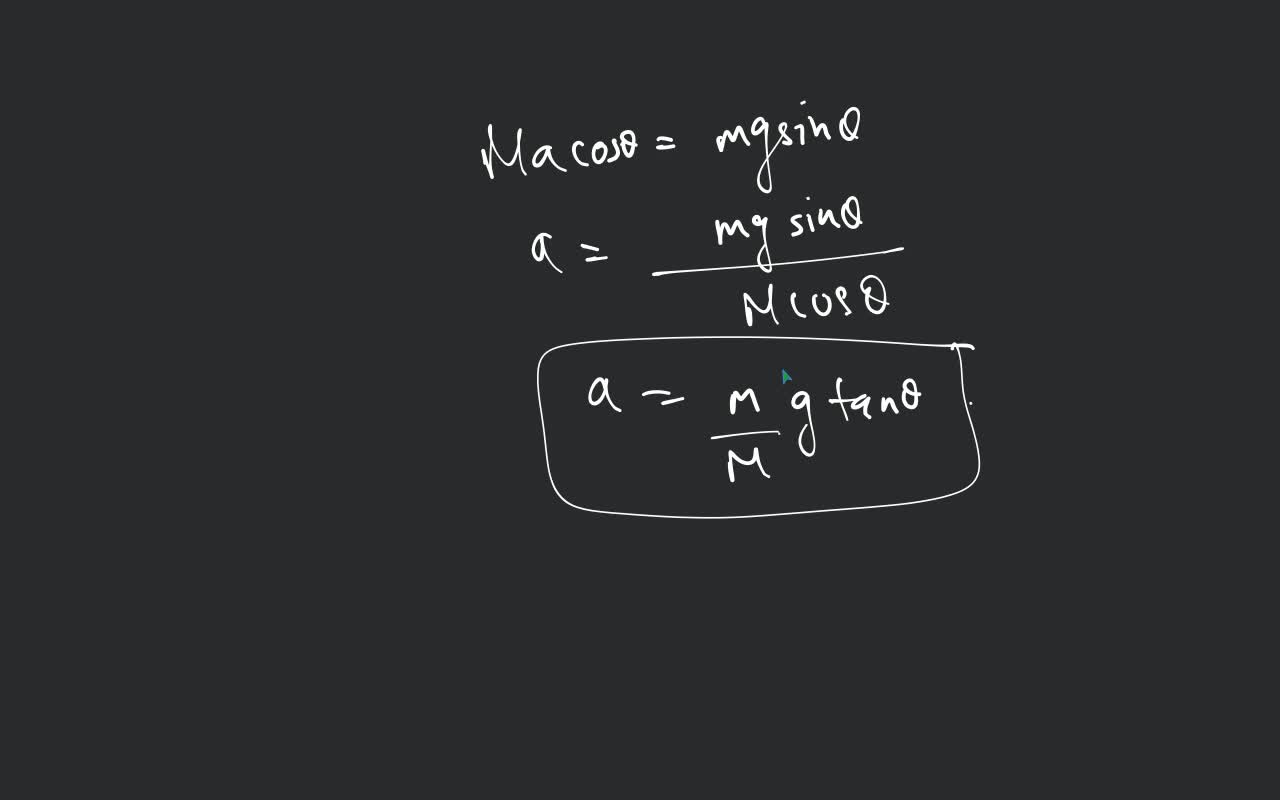 Ma cosθ = mg sinθ
a = mg sinθ / M cosθ
a = m/M g tanθ